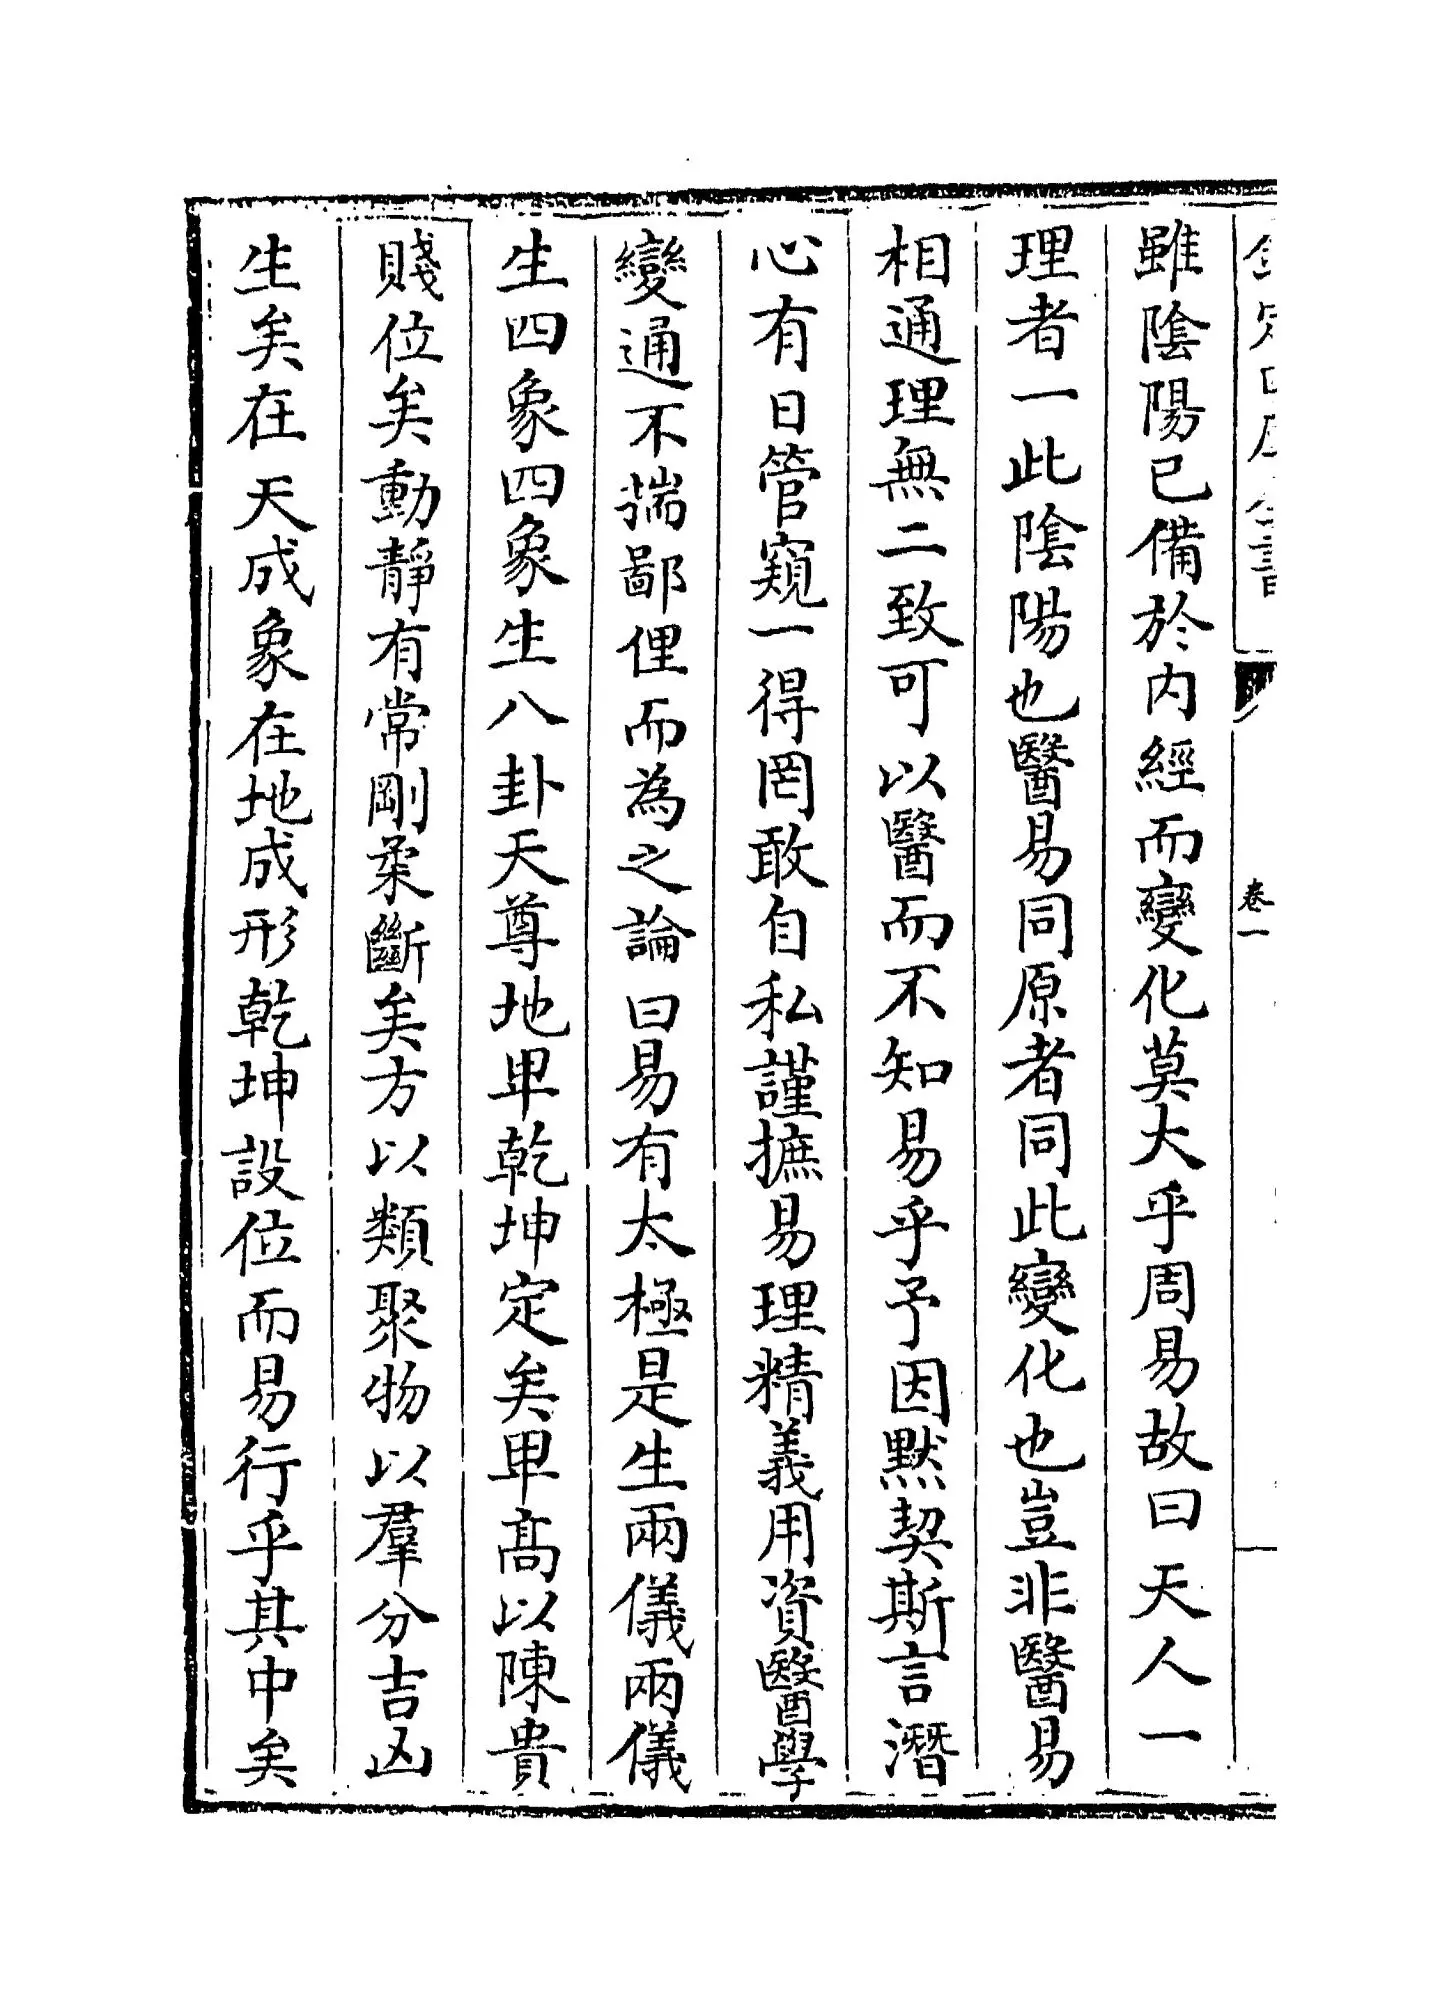 雖陰陽已備於内經而變化莫大乎周易故曰天人一
理者一此陰陽也醫易同原者同此變化也豈非醫易
相通理無二致可以醫而不知易乎予因默契斯言潛
心有日管窺一得罔敢自私謹摭易理精義用資醫學
變通不揣鄙俚而為之論曰易有太極是生兩儀兩儀
生四象四象生八卦天尊地卑乾坤定矣卑髙以陳貴
賤位矣動靜有常剛柔斷矣方以類聚物以羣分吉凶
生矣在天成象在地成形乾坤設位而易行乎其中矣
卷一